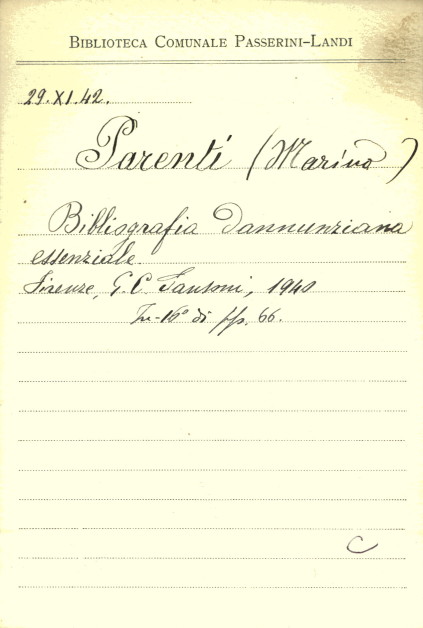 BIBLIOTECA COMUNALE PASSERINI-LANDI
29.XI.42.
Parenti (Marino)
Bibliografia dannunziana
essenziale
Firenze, G. C. Sansoni, 1940
In-16° di pp. 66.
C